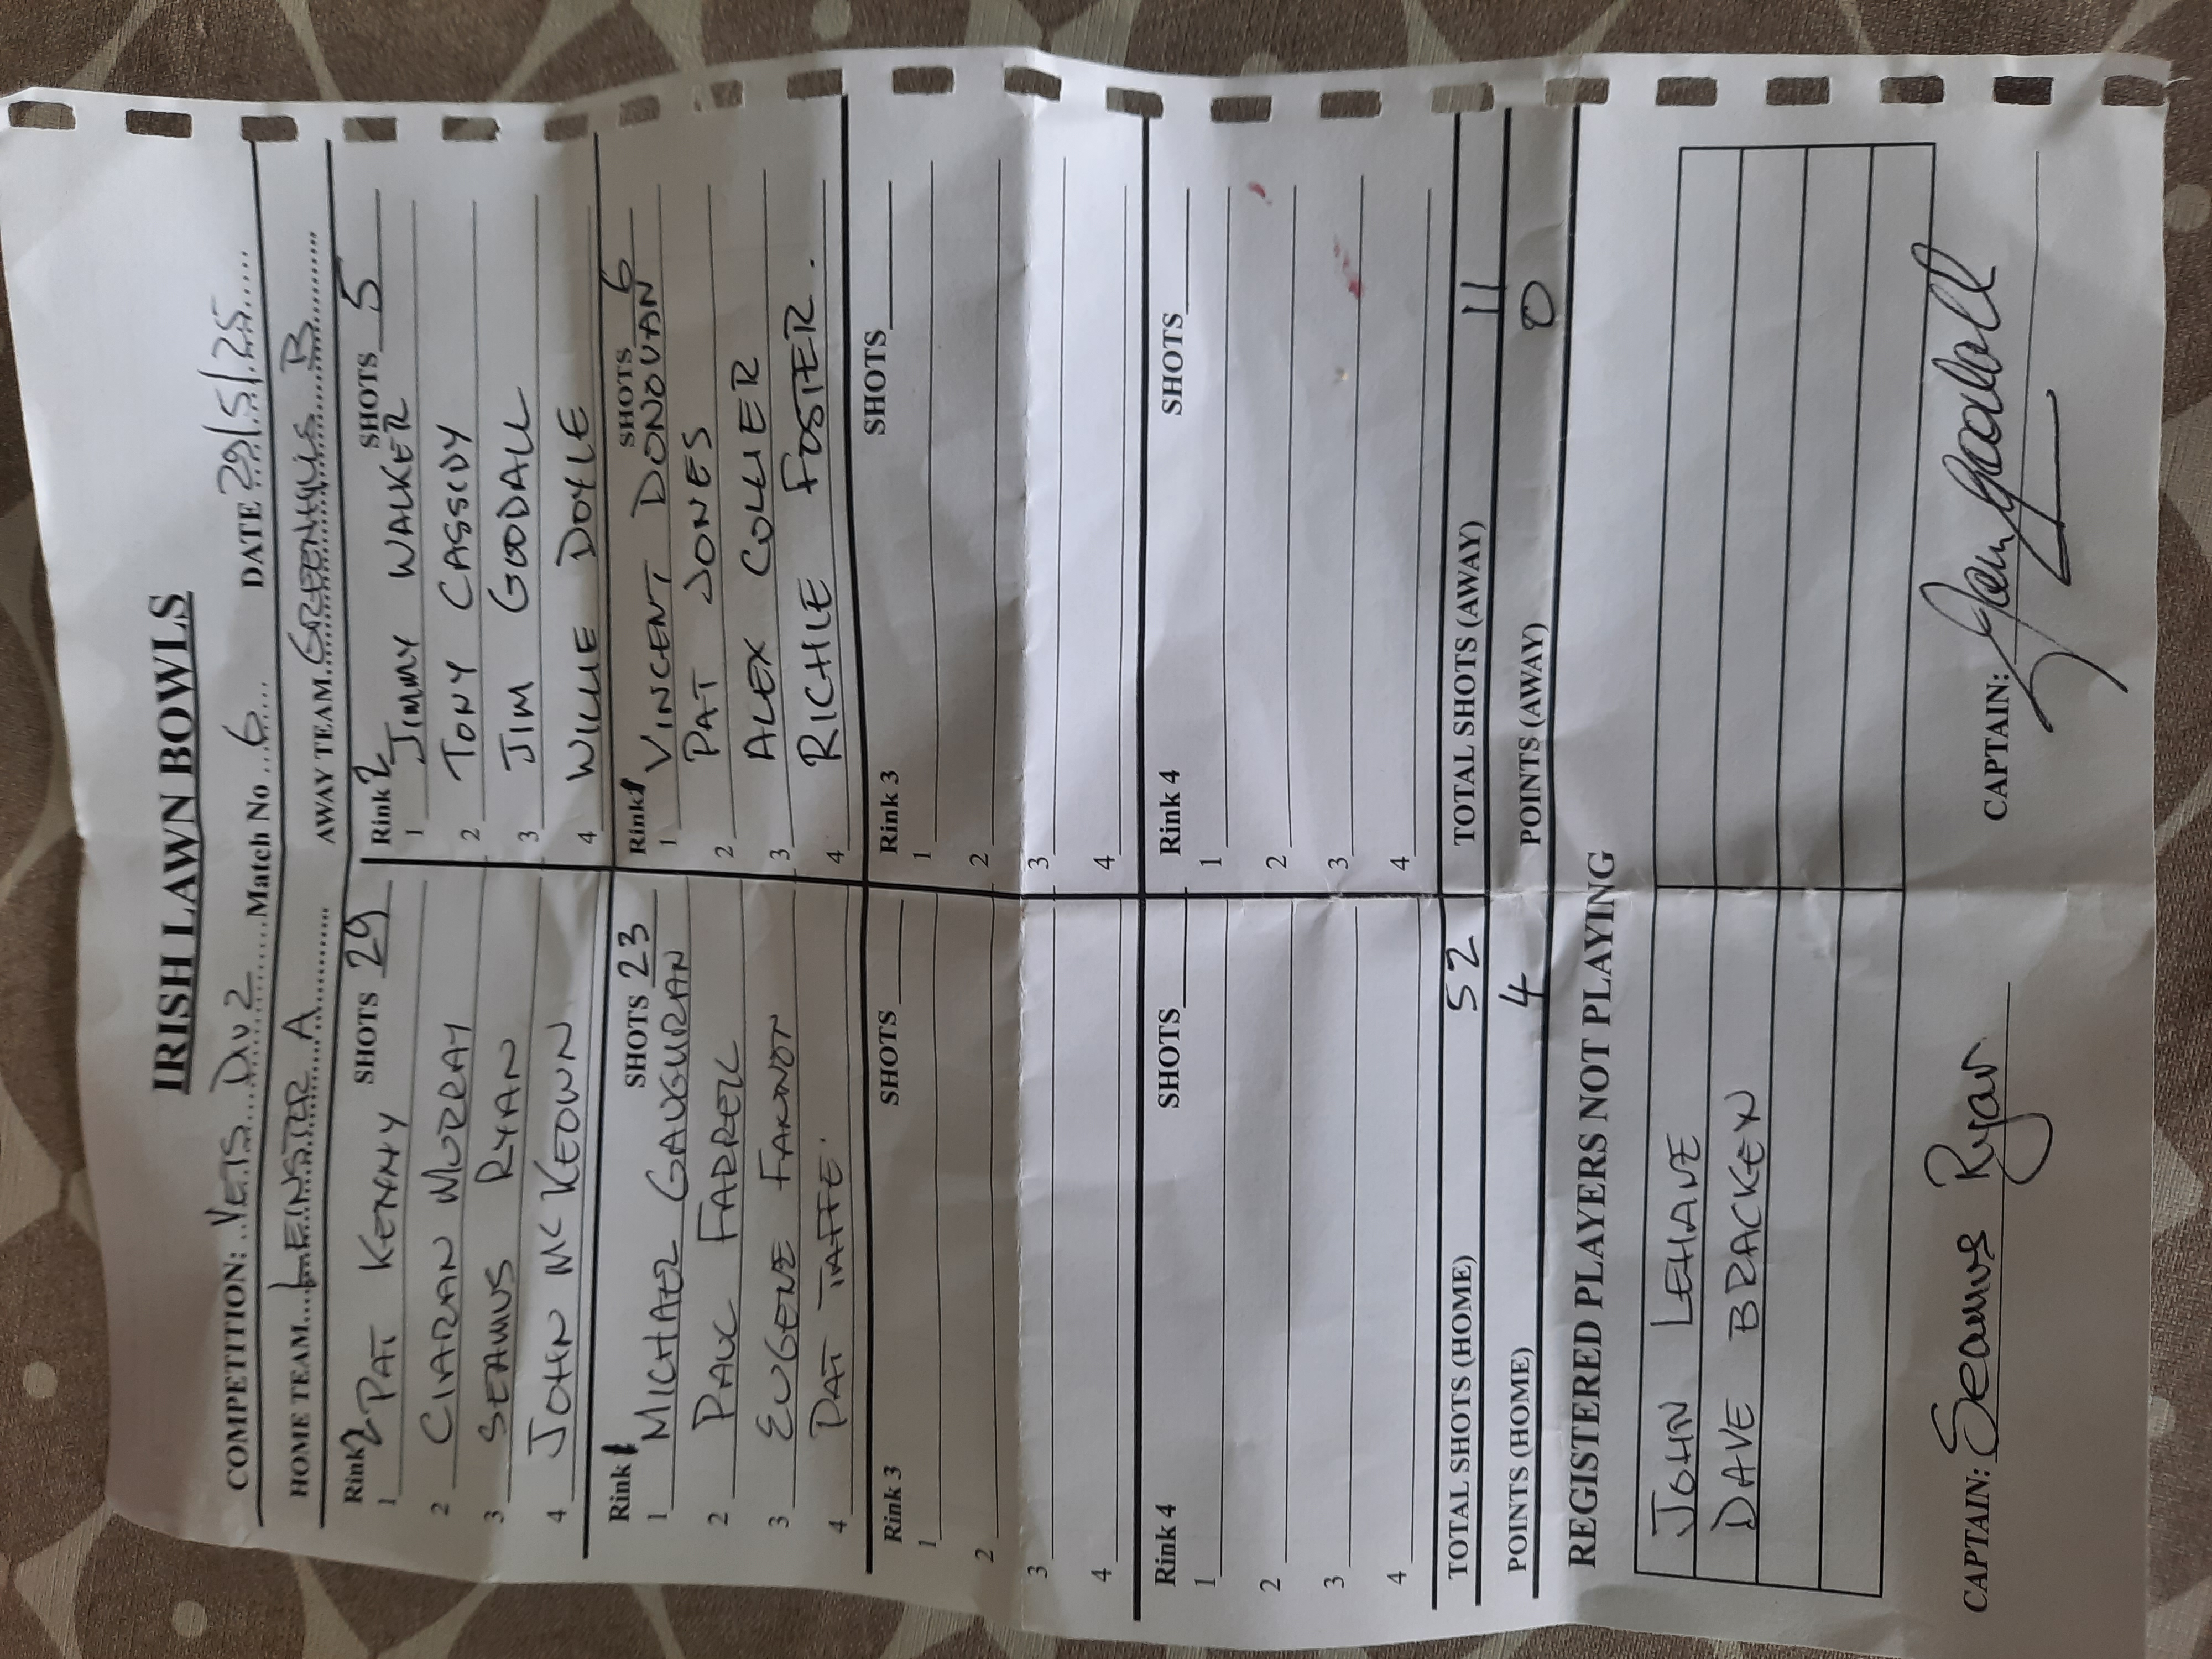 IRISH LAWN BOWLS
COMPETITION: VETS DIV 2 Match No 6 DATE 29/5/25
HOME TEAM LEINSTER A AWAY TEAM GREENHILLS B
Rink 2 SHOTS 29
1 PAT KENNY
2 CIARAN MURRAY
3 SEAMUS RYAN
4 JOHN MC KEOWN
Rink 2 SHOTS 5
1 JIMMY WALKER
2 TONY CASSIDY
3 JIM GOODALL
4 WILLIE DOYLE
Rink 1 SHOTS 23
1 MICHAEL GAUGHRAN
2 PAUL FARRELL
3 EUGENE
4 PAT TAFFE.
Rink 1 SHOTS 6
1 VINCENT DONOVAN
2 PAT JONES
3 ALEX COLLIER
4 RICHIE FOSTER.
Rink 3 SHOTS
1
2
3
4
Rink 3 SHOTS
1
2
3
4
Rink 4 SHOTS
1
2
3
4
Rink 4 SHOTS
1
2
3
4
TOTAL SHOTS (HOME) 52 TOTAL SHOTS (AWAY) 11
POINTS (HOME) 4 POINTS (AWAY) 0
REGISTERED PLAYERS NOT PLAYING
JOHN LEHANE
DAVE BRACKEN
CAPTAIN: Seamus Ryan CAPTAIN: Jim Goodall